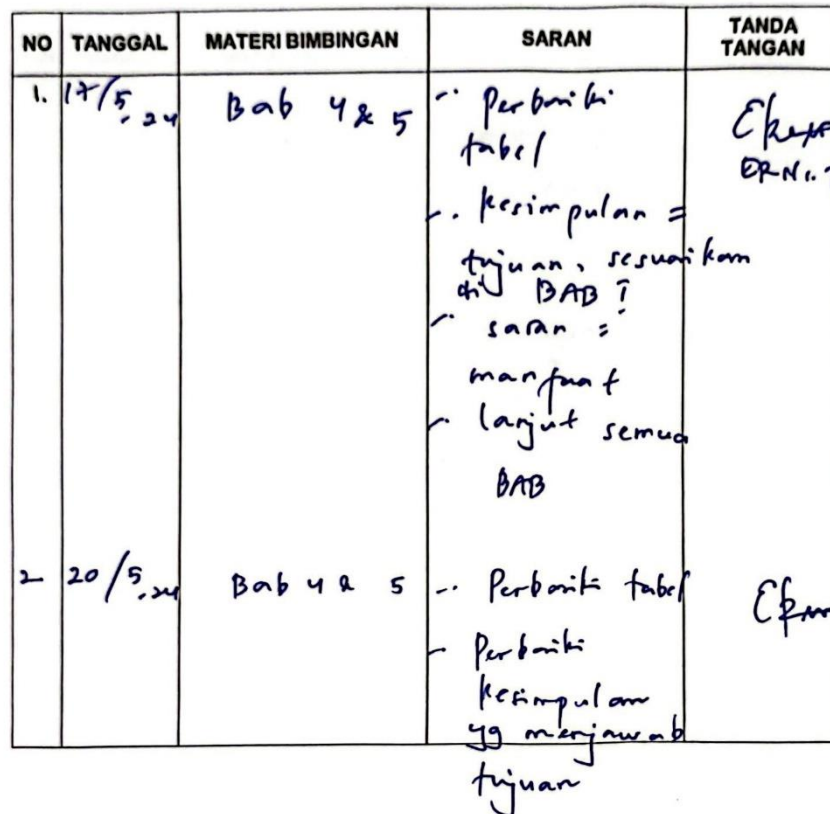 NO TANGGAL MATERI BIMBINGAN SARAN TANDA TANGAN
1. 17/5.24 Bab 4 & 5 - Perbaiki
tabel
ERNi.
- kesimpulan =
tujuan, sesuaikan
di BAB I
- saran =
manfaat
- lanjut semua
BAB
2 20/5.24 Bab 4 & 5 - Perbaiki tabel
- Perbaiki
kesimpulan
yg menjawab
tujuan